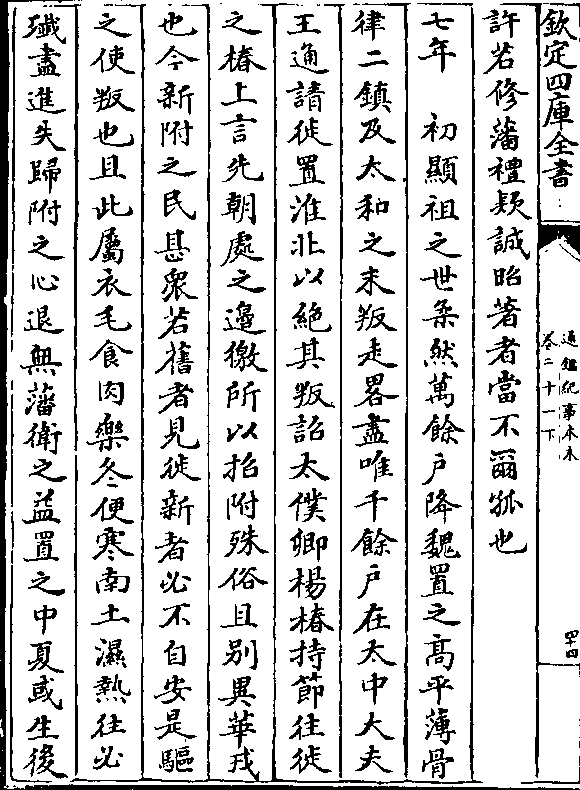 欽定四庫全書
通鑑紀事本末
卷二十一下
四十四
許若修藩禮欵誠昭著者當不爾孤也
七年　初顯祖之世柔然萬餘戶降魏置之高平薄骨
律二鎮及太和之末叛走畧盡唯千餘戶在太中大夫
王通請徙置淮北以絕其叛詔太僕卿楊椿持節往徙
之椿上言先朝處之邊徼所以招附殊俗且別異華戎
也今新附之民甚衆若舊者見徙新者必不自安是驅
之使叛也且此屬衣毛食肉樂冬便寒南土濕熱往必
殲盡進失歸附之心退無藩衛之益置之中夏或生後